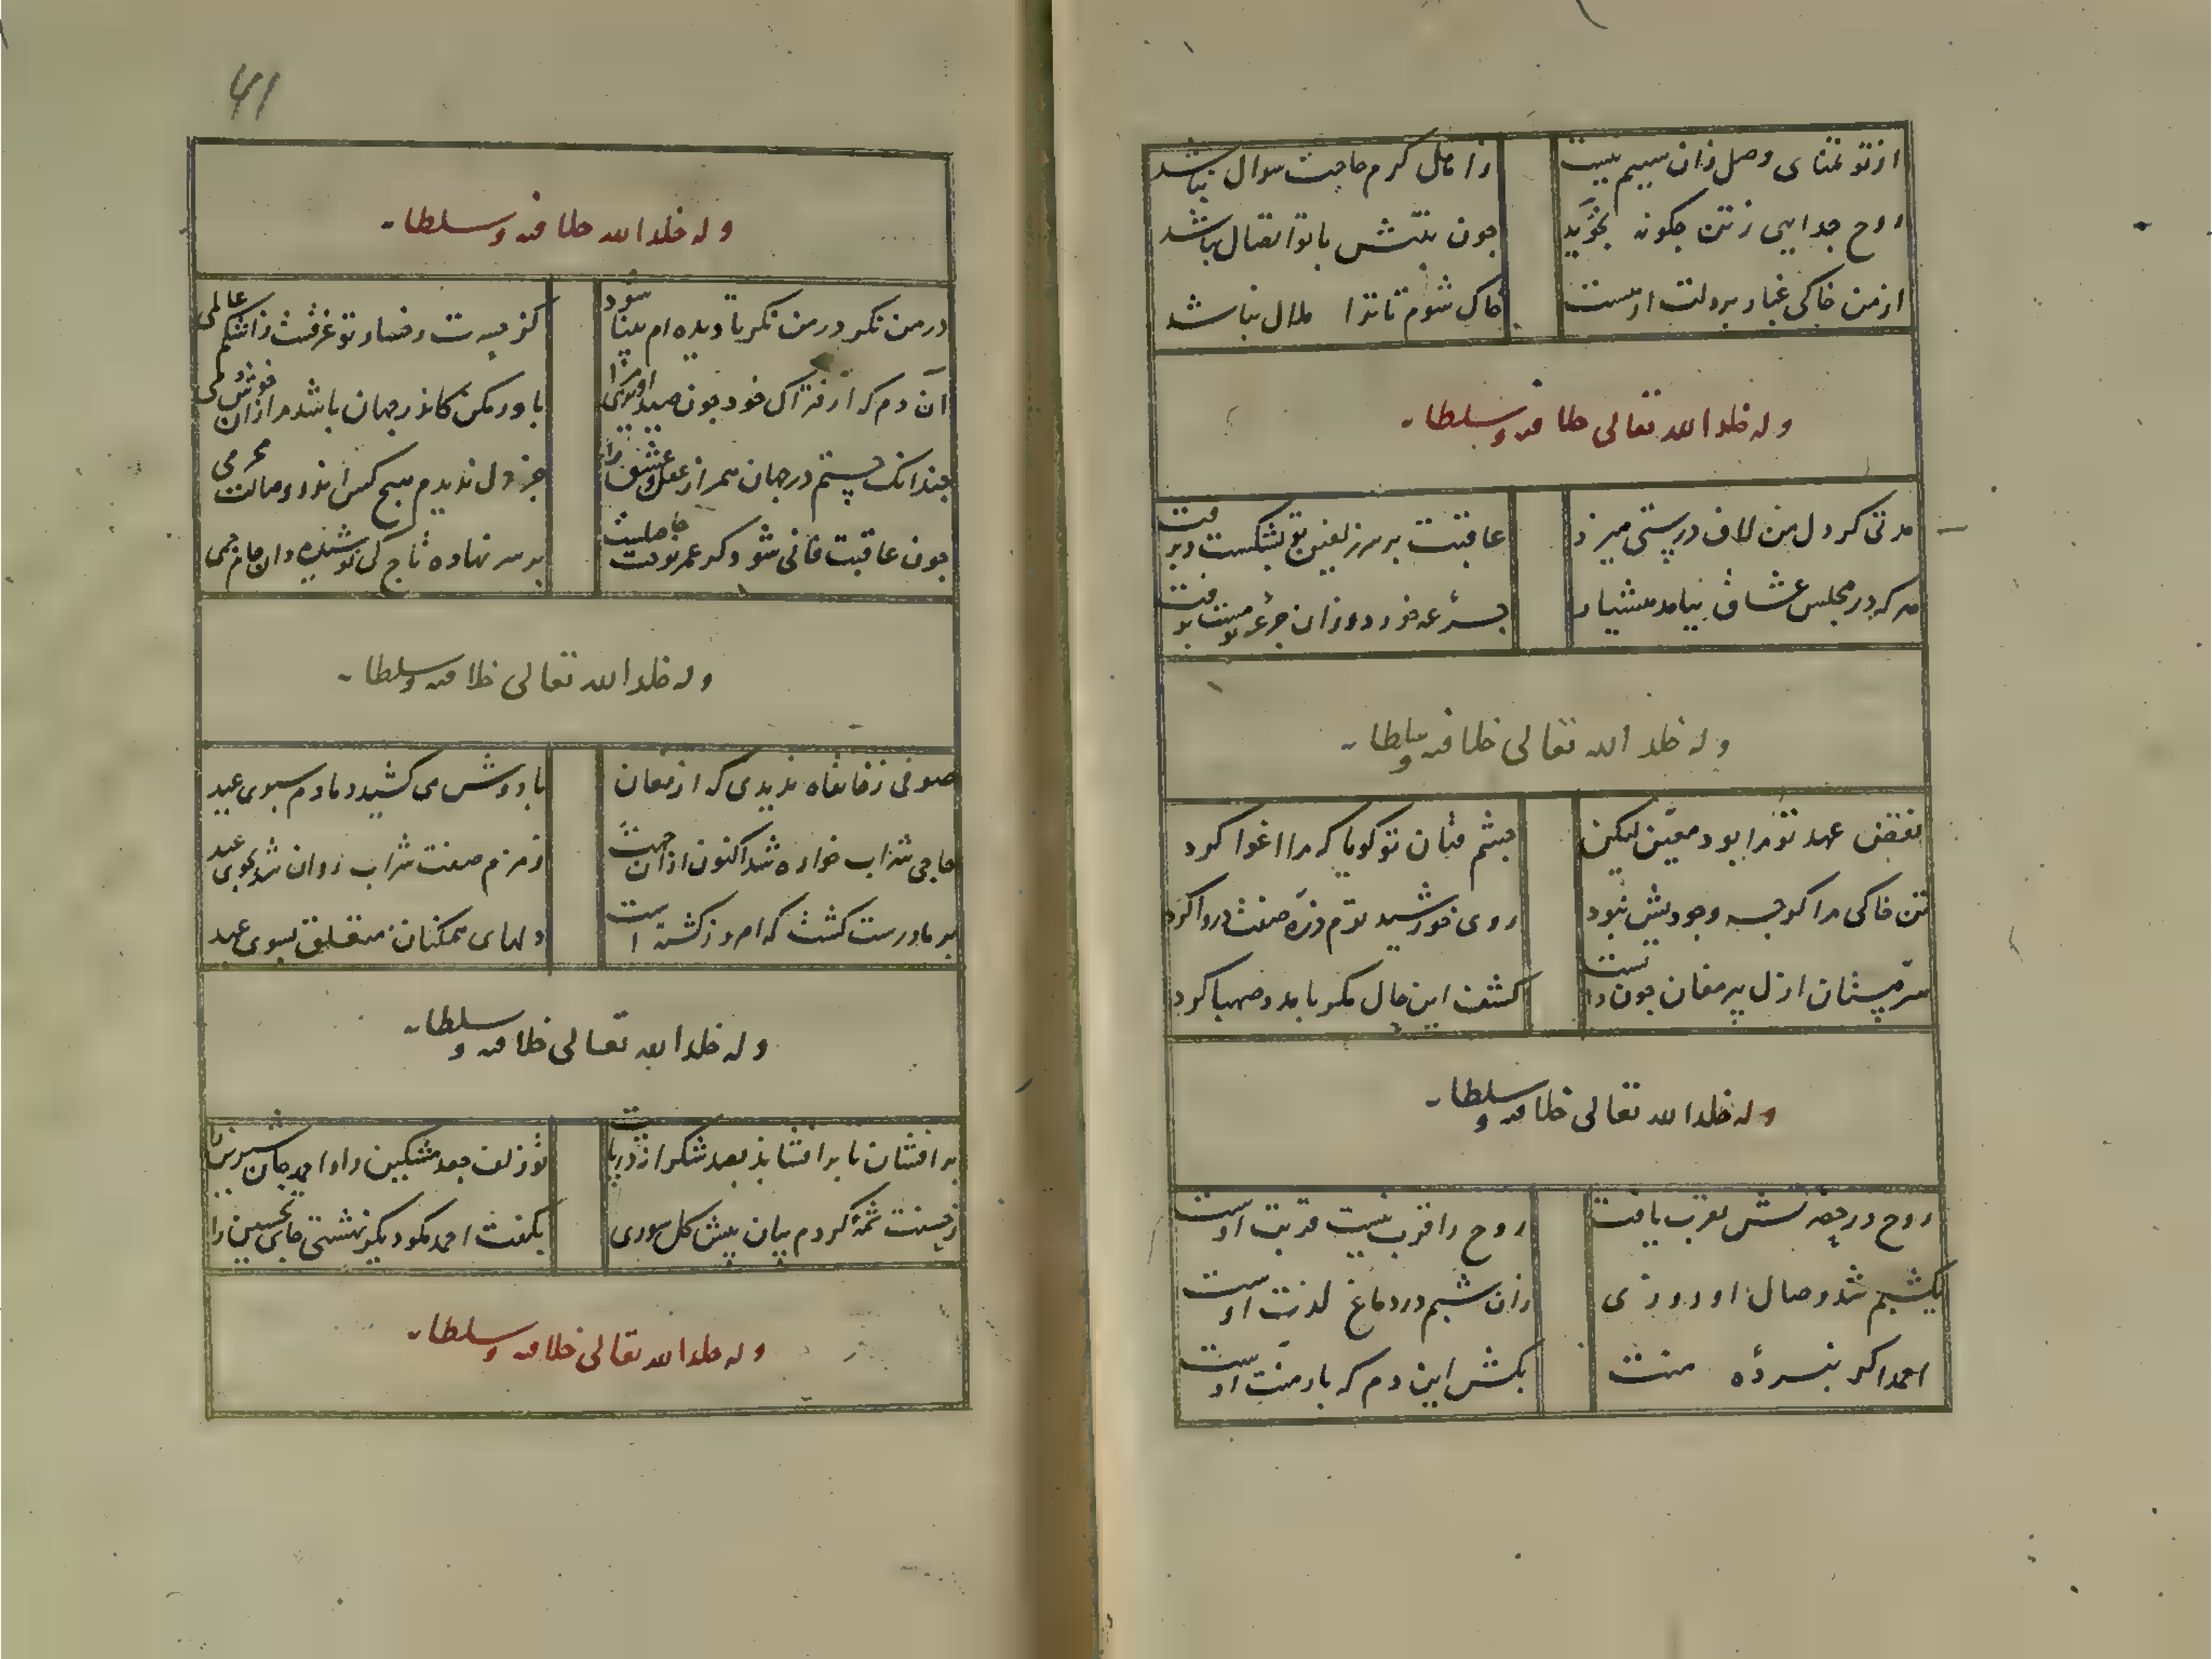 از تو تمنای وصل زان سببم نیست
زاهل کرم حاجت سوال نباشد
روح جدایی ز تن چگونه بجوید
چون بتنش با تو اتصال نباشد
از من خاکی غبار بر دلت ار هست
خاک شوم تا ترا ملال نباشد
وله خلد الله تعالی خلافته و سلطانه
مدتی گر دل من لاف درستی میزد
عاقبت بر سر زلفین تو بشکست و برفت
هر که در مجلس عشاق بیامد هشیار
جرعه خورد و زان جرعه مست برفت
وله خلد الله تعالی خلافته و سلطانه
نقض عهد تو مرا بود معین لیکن
چشم فتان تو گویا که مرا اغوا کرد
تن خاکی مرا گرچه وجودیش نبود
روی خورشید توم ذره صفت دروا کرد
سر مستان ازل پیر مغان چون دانست
کشف این حال مگر با مدد صهبا کرد
وله خلد الله تعالی خلافته و سلطانه
روح در حضرتش تقرب یافت
روح را قرب نیست قربت اوست
یکشبم شد وصال او روزی
زان شبم در دماغ لذت اوست
احمد اگر نبرده منت
بکش این دم که بار منت اوست
41
وله خلد الله خلافته و سلطانه
در من نگر در من نگر تا دیده ام بینا شود
کز حسرت رخسار تو غرقست ز اشکم عالمی
آن دم که از فتراک خود چون صید آویزی مرا
باور مکن کاندر جهان باشد مرا زان خوشدمی
چندانک جستم در جهان همراز عقل و عشق را
جز دل ندیدم هیچ کس اندر وصالت محرمی
چون عاقبت فانی شود گر عمر نوحت حاصلست
بر سر نهاده تاج کی نوشیده دان جام جمی
وله خلد الله تعالی خلافته و سلطانه
صوفی ز خانقاه ندیدی که از مغان
با دوش می کشید دمادم سبوی عید
حاجی شراب خواره شد اکنون از آن جهت
زمزم صفت شراب روان شد بجوی عید
بر ما درست گشت که امروز گشته است
دلهای همکنان متعلق بسوی عید
وله خلد الله تعالی خلافته و سلطانه
بر افشان تا بر افشاند بصد شکر از در پایت
تو زلف جعد مشکین را و احمد جان شیرین را
ز حسنت شمه کردم بیان پیش گل سوری
بگفت احمد مگو دیگر نهشتی جای تحسین را
وله خلد الله تعالی خلافته و سلطانه